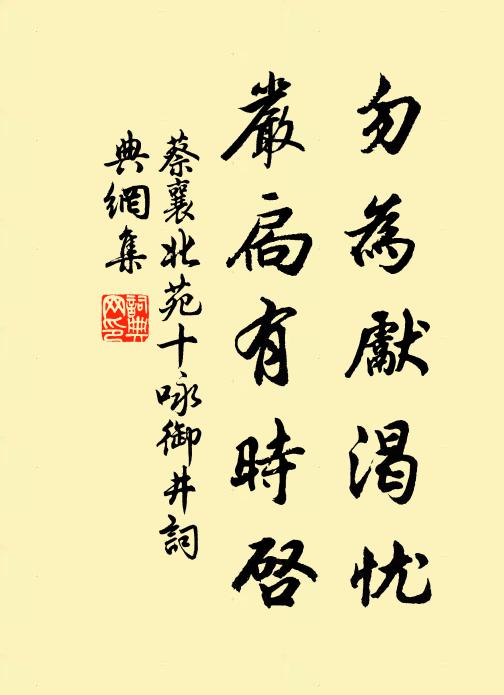 勿為獻渴忧
嚴扃有時啓
蔡襄北苑十咏御井詞
典網集
詞典網印